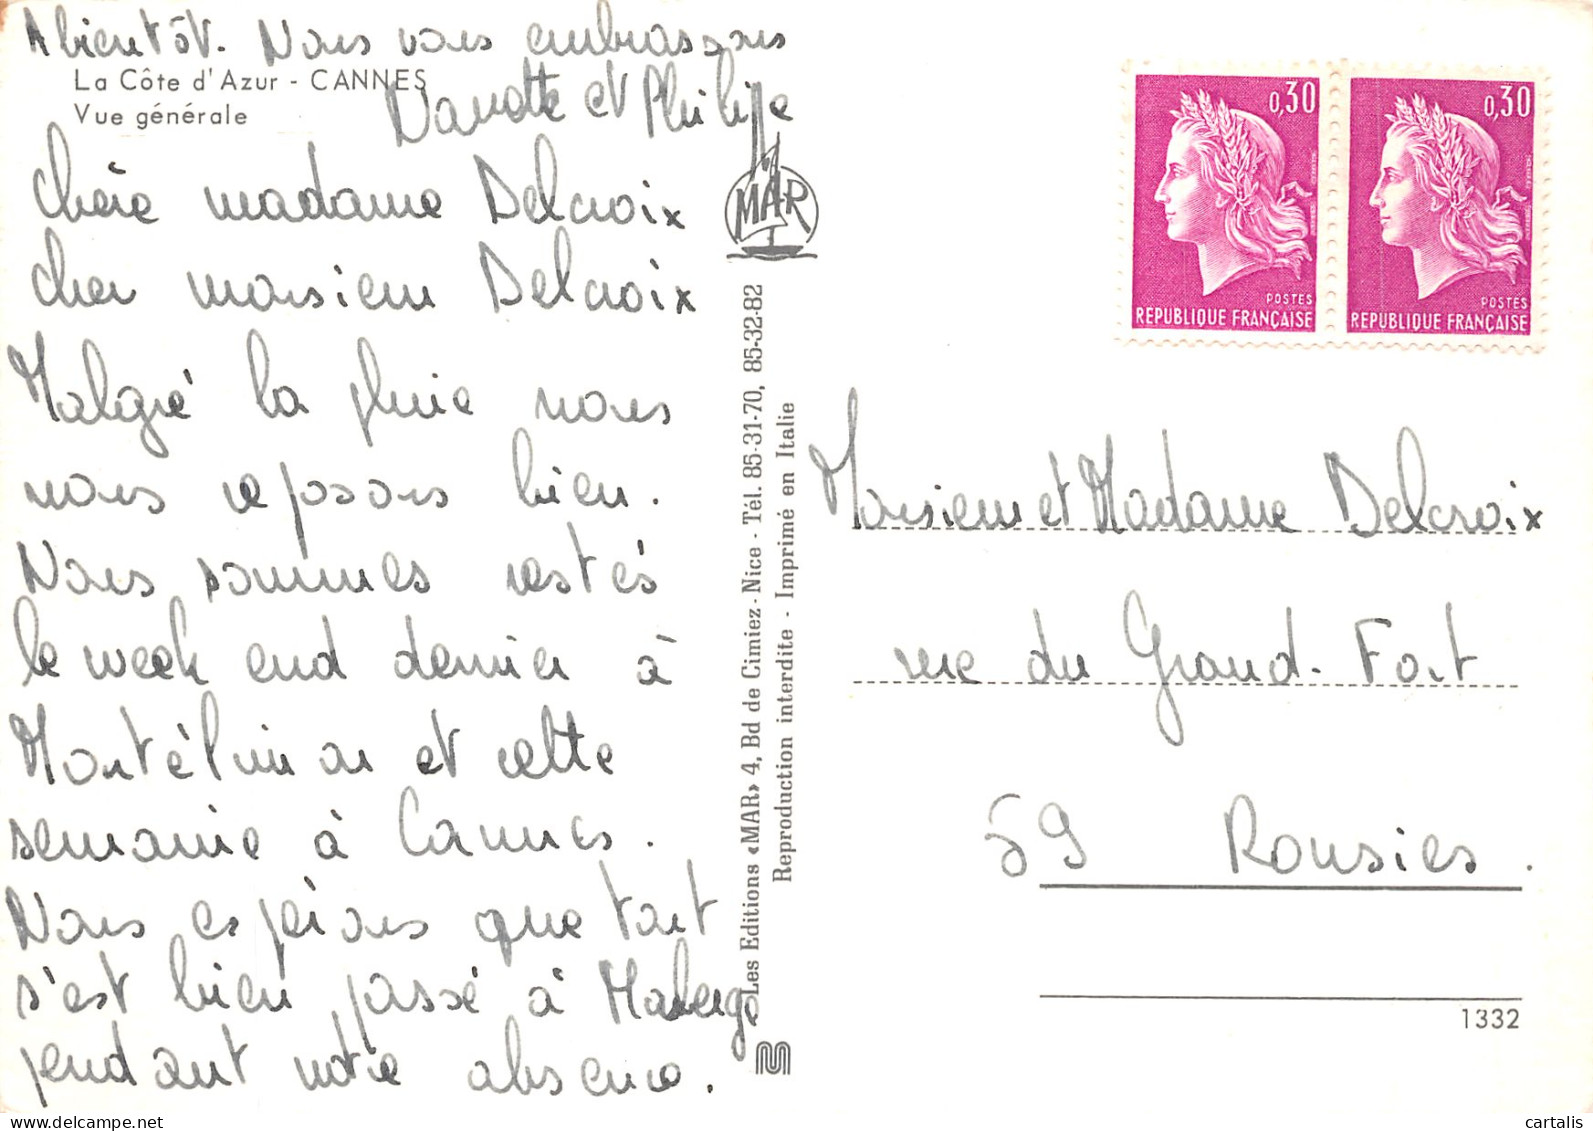 A bientôt. Nous vous embrassons
Danotte et Philippe
La Côte d'Azur - CANNES
Vue générale
chère madame Delcroix
cher monsieur Delcroix
Malgré la pluie nous
nous reposons bien.
Nous sommes restés
le week end dernier à
Montélimar et cette
semaine à Cannes.
Nous espérons que tout
s'est bien passé à
pendant notre absence.
MAR
Les Editions «MAR» 4, Bd de Cimiez - Nice - Tél. 85-31-70, 85-32-82
Reproduction interdite - Imprimé en Italie
0,30
POSTES
REPUBLIQUE FRANÇAISE
0,30
POSTES
REPUBLIQUE FRANÇAISE
Monsieur et Madame Delcroix
rue du Grand-Fort
59 Rousies.
1332
cartalis